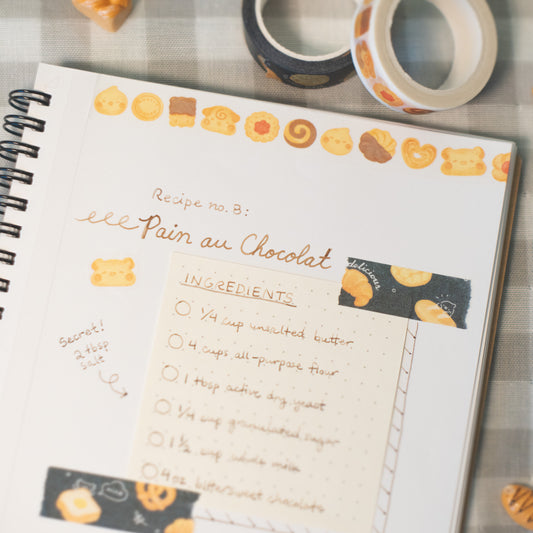 Recipe no. 3:
Pain au Chocolat
delicious
INGREDIENTS
1/4 cup unsalted butter
4 cups all-purpose flour
1 tbsp active dry yeast
1/4 cup granulated sugar
1 1/2 cup whole milk
4 oz bittersweet chocolate
Secret!
2 tbsp
salt